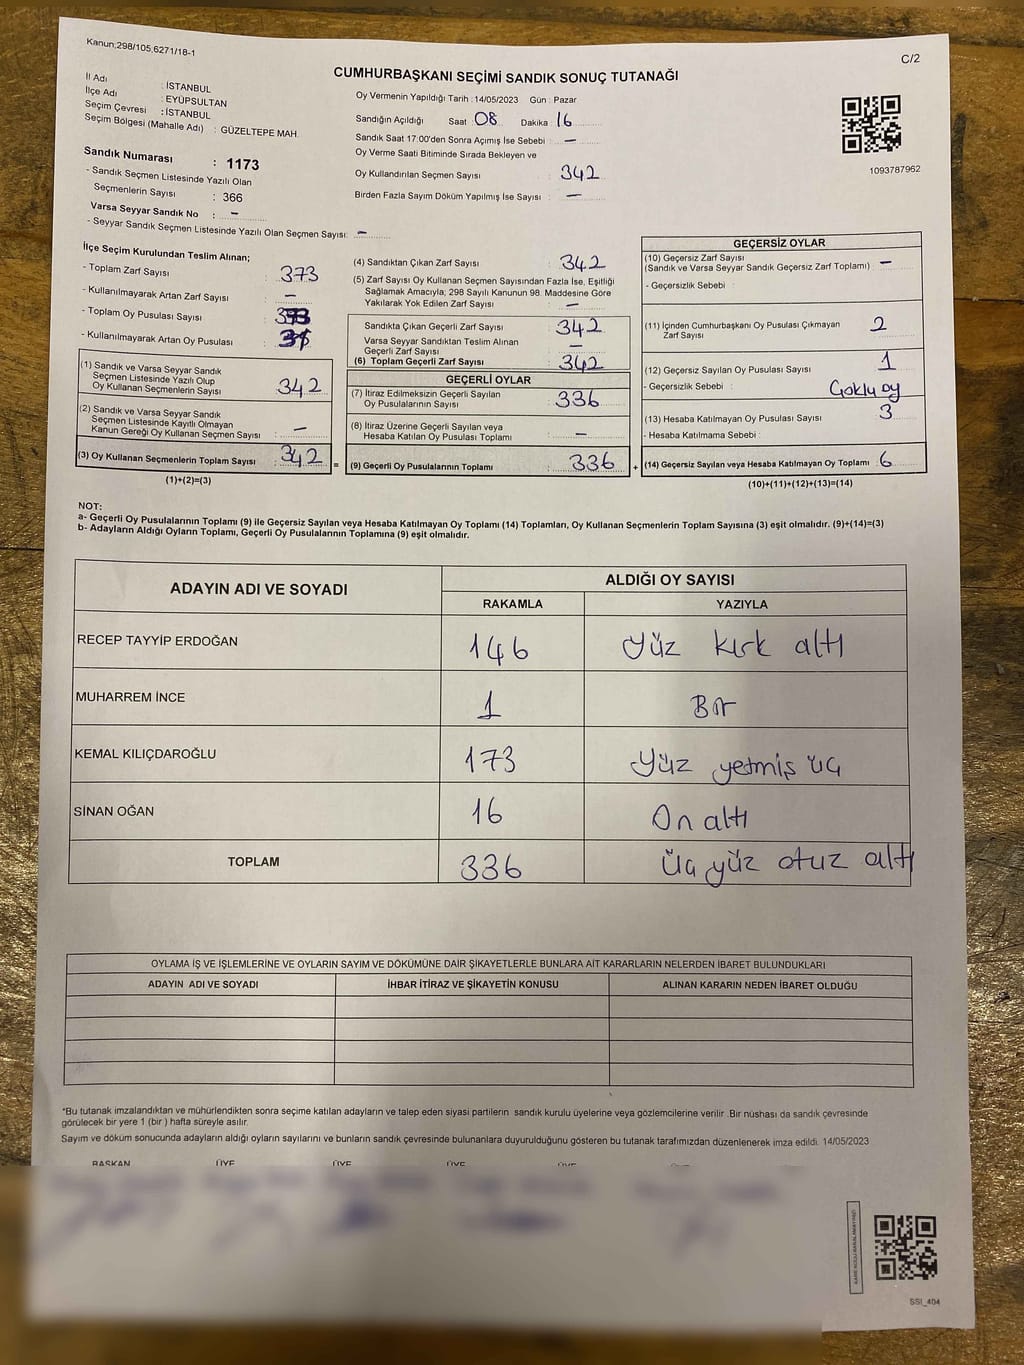 Kanun;298/105,6271/18-1
C/2
CUMHURBAŞKANI SEÇİMİ SANDIK SONUÇ TUTANAĞI
İl Adı : İSTANBUL
İlçe Adı : EYÜPSULTAN
Seçim Çevresi : İSTANBUL
Seçim Bölgesi (Mahalle Adı) : GÜZELTEPE MAH.
Sandık Numarası : 1173
- Sandık Seçmen Listesinde Yazılı Olan
Seçmenlerin Sayısı : 366
Varsa Seyyar Sandık No : -
- Seyyar Sandık Seçmen Listesinde Yazılı Olan Seçmen Sayısı: -
Oy Vermenin Yapıldığı Tarih : 14/05/2023 Gün : Pazar
Sandığın Açıldığı Saat : 08 Dakika : 16
Sandık Saat 17:00'den Sonra Açımış İse Sebebi : -
Oy Verme Saati Bitiminde Sırada Bekleyen ve
Oy Kullandırılan Seçmen Sayısı : 342
Birden Fazla Sayım Döküm Yapılmış İse Sayısı : -
1093787962
İlçe Seçim Kurulundan Teslim Alınan;
- Toplam Zarf Sayısı : 373
- Kullanılmayarak Artan Zarf Sayısı : -
- Toplam Oy Pusulası Sayısı :
- Kullanılmayarak Artan Oy Pusulası :
(1) Sandık ve Varsa Seyyar Sandık
Seçmen Listesinde Yazılı Olup
Oy Kullanan Seçmenlerin Sayısı : 342
(2) Sandık ve Varsa Seyyar Sandık
Seçmen Listesinde Kayıtlı Olmayan
Kanun Gereği Oy Kullanan Seçmen Sayısı : -
(3) Oy Kullanan Seçmenlerin Toplam Sayısı : 342 =
(1)+(2)=(3)
(4) Sandıktan Çıkan Zarf Sayısı : 342
(5) Zarf Sayısı Oy Kullanan Seçmen Sayısından Fazla İse, Eşitliği
Sağlamak Amacıyla; 298 Sayılı Kanunun 98. Maddesine Göre
Yakılarak Yok Edilen Zarf Sayısı : -
Sandıkta Çıkan Geçerli Zarf Sayısı : 342
Varsa Seyyar Sandıktan Teslim Alınan
Geçerli Zarf Sayısı : -
(6) Toplam Geçerli Zarf Sayısı : 342
GEÇERLİ OYLAR
(7) İtiraz Edilmeksizin Geçerli Sayılan
Oy Pusulalarının Sayısı : 336
(8) İtiraz Üzerine Geçerli Sayılan veya
Hesaba Katılan Oy Pusulası Toplamı : -
(9) Geçerli Oy Pusulalarının Toplamı : 336 +
GEÇERSİZ OYLAR
(10) Geçersiz Zarf Sayısı : -
(Sandık ve Varsa Seyyar Sandık Geçersiz Zarf Toplamı)
- Geçersizlik Sebebi :
(11) İçinden Cumhurbaşkanı Oy Pusulası Çıkmayan
Zarf Sayısı : 2
(12) Geçersiz Sayılan Oy Pusulası Sayısı : 1
- Geçersizlik Sebebi : Çoklu oy
(13) Hesaba Katılmayan Oy Pusulası Sayısı : 3
- Hesaba Katılmama Sebebi :
(14) Geçersiz Sayılan veya Hesaba Katılmayan Oy Toplamı : 6
(10)+(11)+(12)+(13)=(14)
NOT:
a- Geçerli Oy Pusulalarının Toplamı (9) ile Geçersiz Sayılan veya Hesaba Katılmayan Oy Toplamı (14) Toplamları, Oy Kullanan Seçmenlerin Toplam Sayısına (3) eşit olmalıdır. (9)+(14)=(3)
b- Adayların Aldığı Oyların Toplamı, Geçerli Oy Pusulalarının Toplamına (9) eşit olmalıdır.
ADAYIN ADI VE SOYADI ALDIĞI OY SAYISI
RAKAMLA YAZIYLA
RECEP TAYYİP ERDOĞAN 146 Yüz kırk altı
MUHARREM İNCE 1 Bir
KEMAL KILIÇDAROĞLU 173 Yüz yetmiş üç
SİNAN OĞAN 16 On altı
TOPLAM 336 Üç yüz otuz altı
OYLAMA İŞ VE İŞLEMLERİNE VE OYLARIN SAYIM VE DÖKÜMÜNE DAİR ŞİKAYETLERLE BUNLARA AİT KARARLARIN NELERDEN İBARET BULUNDUKLARI
ADAYIN ADI VE SOYADI İHBAR İTİRAZ VE ŞİKAYETİN KONUSU ALINAN KARARIN NEDEN İBARET OLDUĞU
*Bu tutanak imzalandıktan ve mühürlendikten sonra seçime katılan adayların ve talep eden siyasi partilerin sandık kurulu üyelerine veya gözlemcilerine verilir .Bir nüshası da sandık çevresinde
görülecek bir yere 1 (bir ) hafta süreyle asılır.
Sayım ve döküm sonucunda adayların aldığı oyların sayılarını ve bunların sandık çevresinde bulunanlara duyurulduğunu gösteren bu tutanak tarafımızdan düzenlenerek imza edildi. 14/05/2023
BAŞKAN ÜYE ÜYE ÜYE ÜYE ÜYE
SSI_404